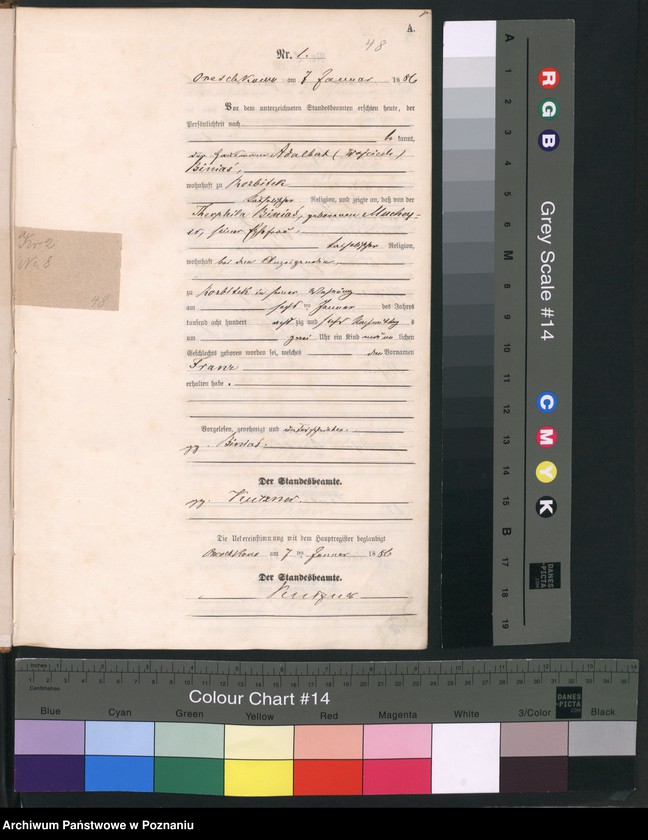 A.
48
Nr. 1.
Oreschkowo am 7 Januar 1886
Vor dem unterzeichneten Standesbeamten erschien heute, der
Persönlichkeit nach
be kannt,
der Adalbert (Wojciech)
Binias,
wohnhaft zu
katholischer Religion, und zeigte an, daß von der
Theophila Binias, geborenen
seiner Ehefrau,
katholischer Religion,
wohnhaft bei dem Anzeigenden,
zu in seiner Wohnung
am Januar des Jahres
tausend acht hundert acht zig und sechs Nachmittag s
um zwei Uhr ein Kind männ lichen
Geschlechts geboren worden sei, welches den Vornamen
Franz
erhalten habe.
Vorgelesen, genehmigt und unterschrieben.
gez. Binias.
Der Standesbeamte.
gez. Kutzner.
Die Uebereinstimmung mit dem Hauptregister beglaubigt
am 7 ten Januar 1886
Der Standesbeamte.
Kutzner
No 8
48
A
1
2
3
4
5
6
M
8
9
10
11
12
13
14
15
B
17
18
19
R
G
B
Grey Scale #14
C
M
Y
K
DANES
PICTA
.COM
Inches
1 2 3 4 5 6 7 8 9 10 11 12 13 14
Centimetres
Colour Chart #14
DANES
PICTA
.COM
Blue Cyan Green Yellow Red Magenta White 3/Color Black
Archiwum Państwowe w Poznaniu